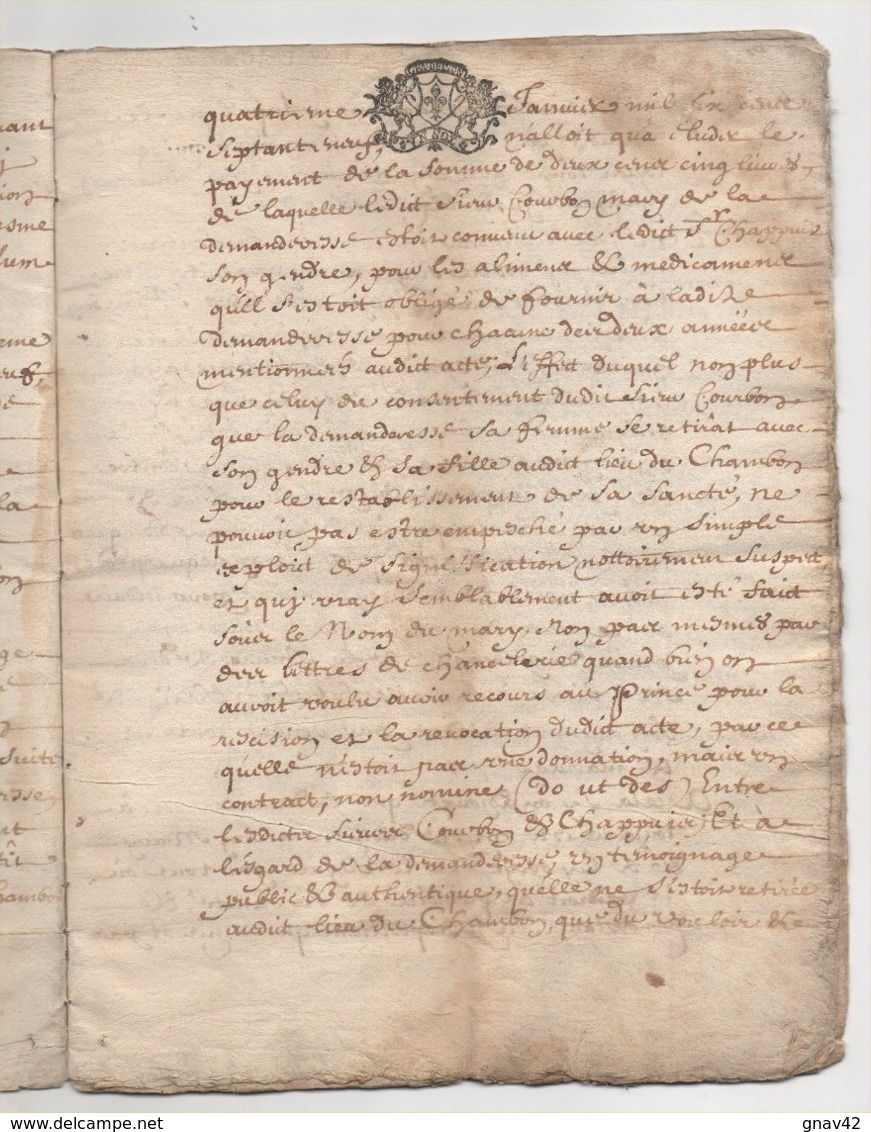 quatriesme Janvier mil six cens
septante neuf, n'alloit qu'a éluder le
payement de la somme de deux cens cinq livres,
de laquelle ledict sieur Courbon mary de la
demanderesse estoit convenu avec ledict Sr Chappuis
son gendre, pour les alimens & medicamens
qu'il s'estoit obligé de fournir à ladite
demanderesse pour chacune des deux années
mentionnees audict acte, L'effect duquel non plus
que celuy du consentement dudit sieur Courbon
que la demanderesse sa femme se retirât avec
son gendre & sa fille audict lieu du Chambon
pour le restablissement de sa sancté, ne
pouvoit pas estre empesché par un simple
exploit de signification nottoirement suspect,
et qui vray semblablement avoit esté faict
soubs le Nom du mary, Non pas mesmes par
des lettres de chancelerie quand bien on
auroit voulu avoir recours au Prince pour la
rescision et la revocation dudict acte, par ce
quelle n'estoit pas une donnation, mais un
contract, non nomine (do ut des) Entre
lesdicts sieurs Courbon & Chappuis, Et à
l'esgard de la demanderesse, un temoignage
public & authentique, quelle ne s'estoit retirée
audict lieu du Chambon, que du vouloir &
uant
ion
esme
eme
la
on
ge
suite
esse,
nt
hambo
gnav42